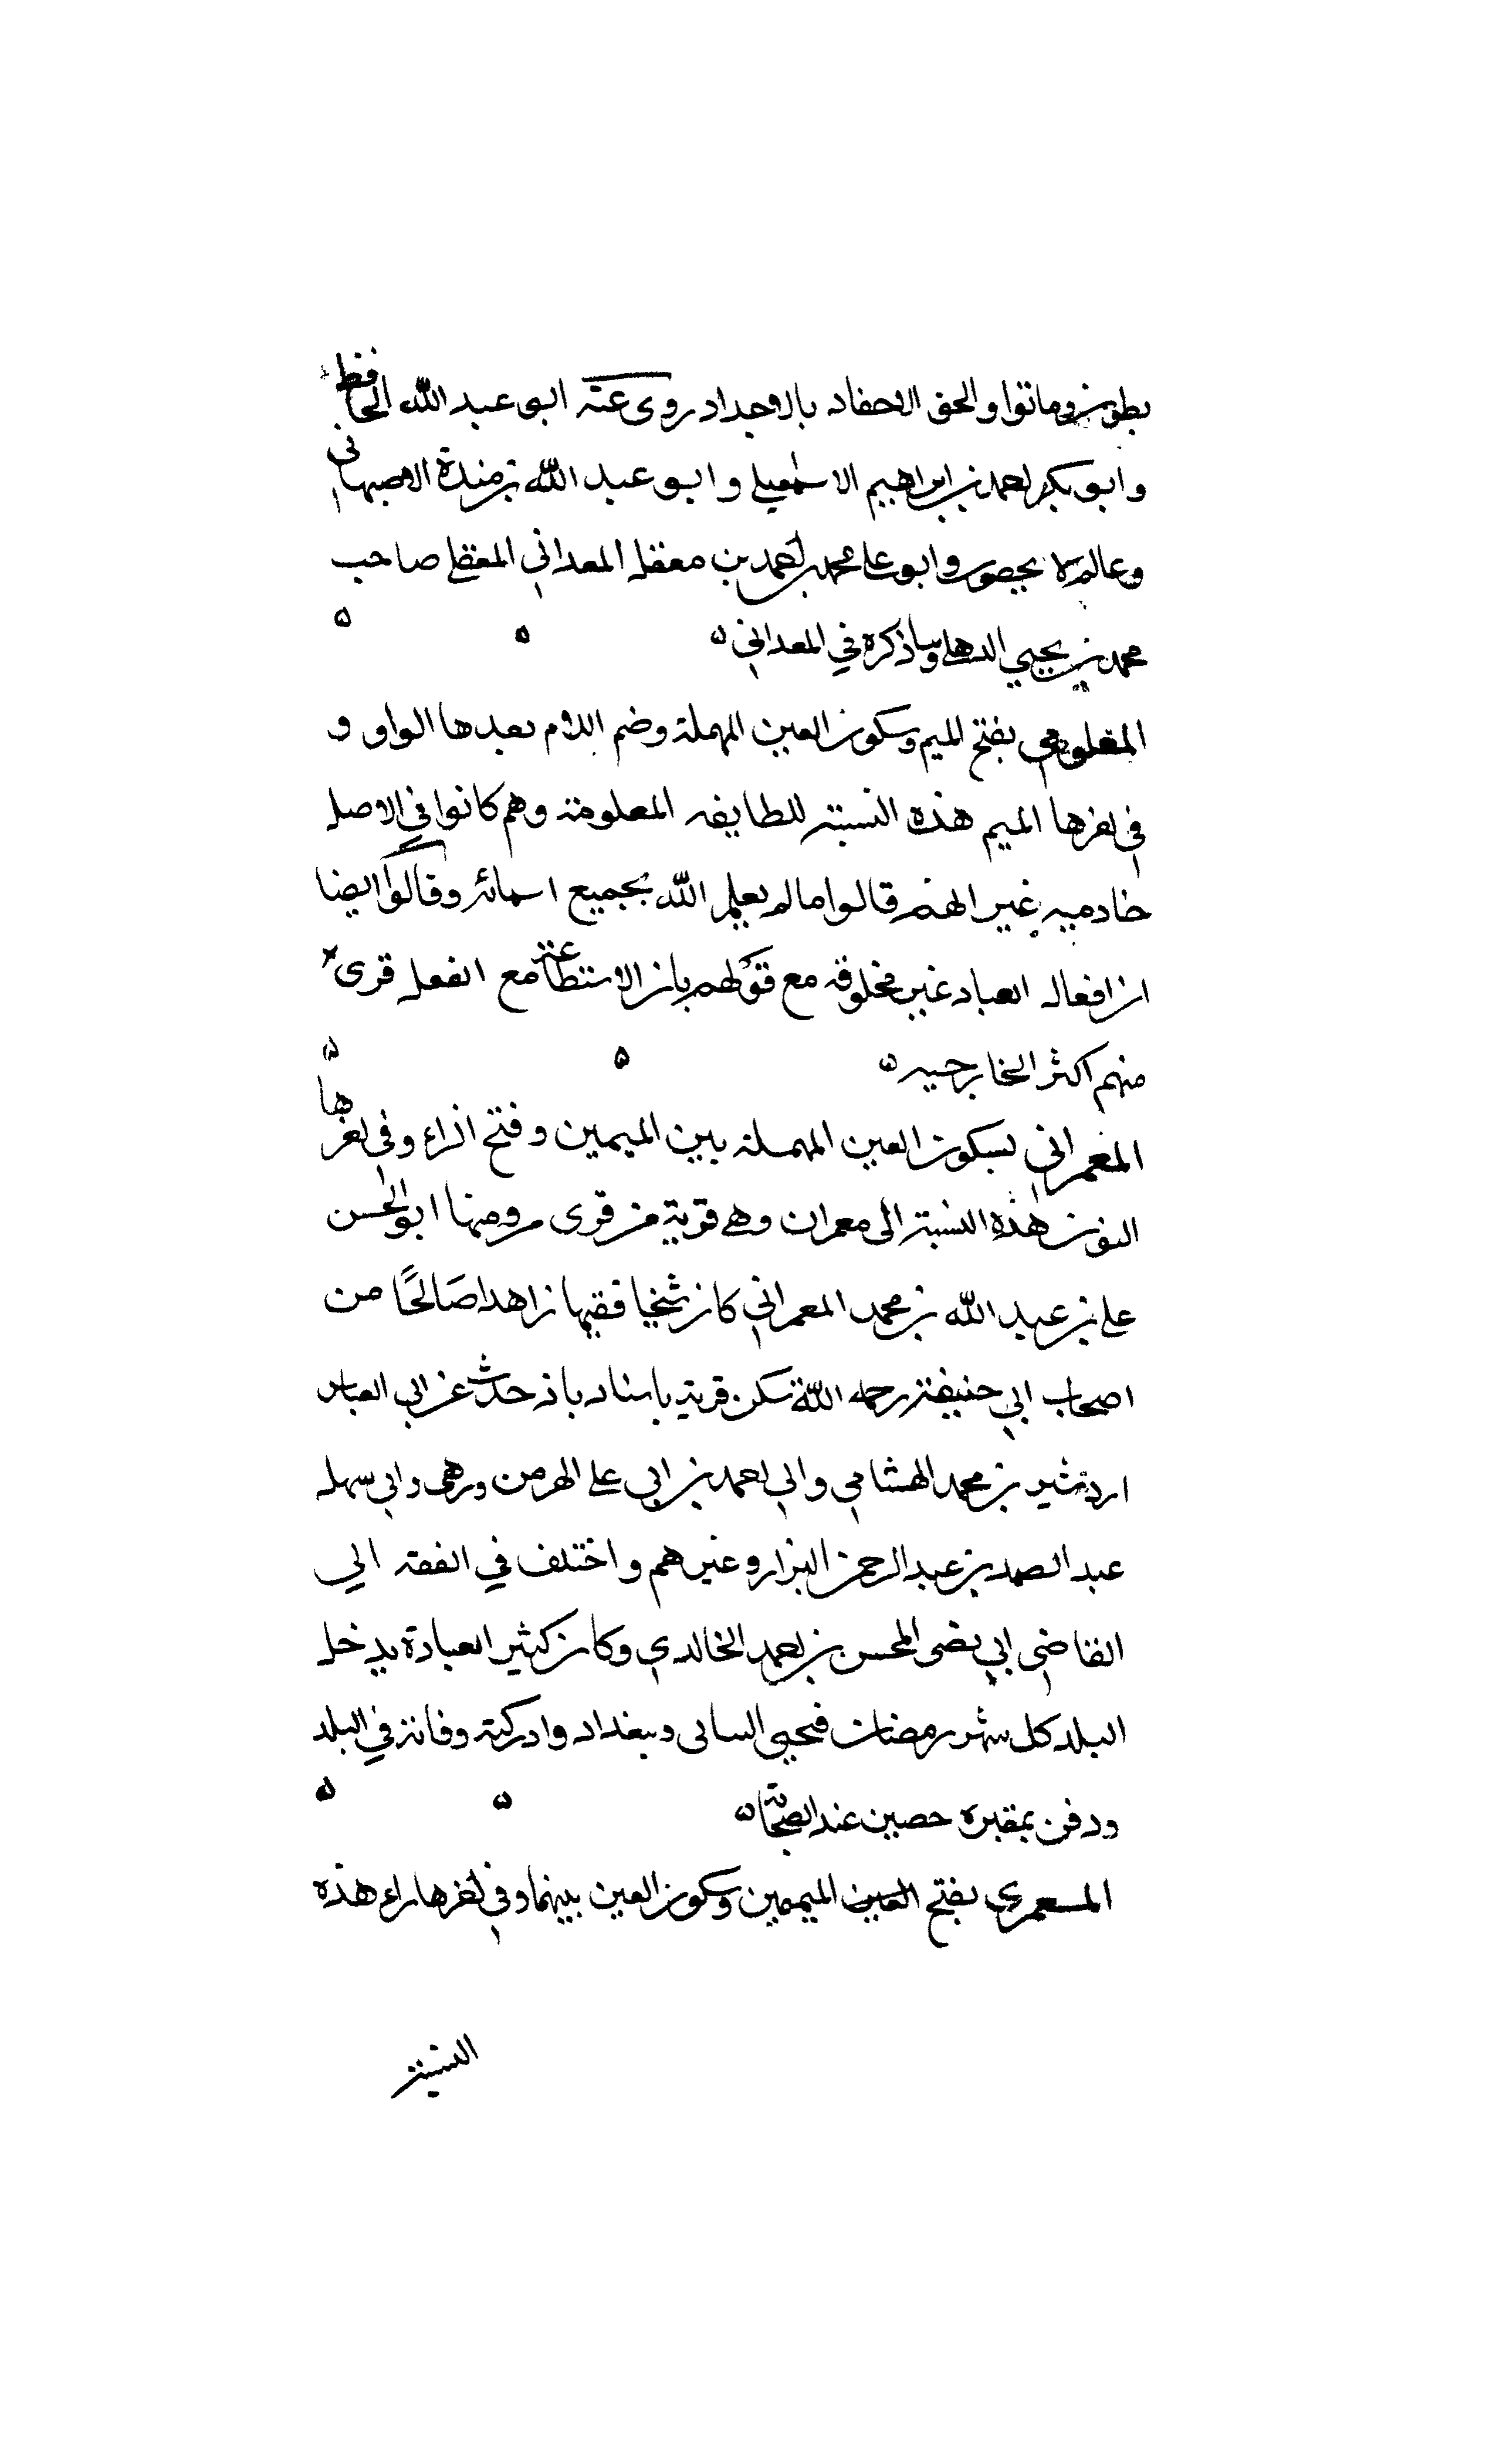 بطون وماتوا والحق الاحفاد بالاجداد روى عنه ابو عبد الله الحافظ
وابو بكر احمد بن ابراهيم الاسمعيلي وابو عبد الله بن مندة الاصبهاني
وعالم لا يحصون وابو علي محمد بن احمد بن معقل المعداني المعقلي صاحب
محمد بن يحيي الذهلي وساذكره في المعداني
المعلومي بفتح الميم وسكون العين المهملة وضم اللام بعدها الواو و
في اخرها الميم هذه النسبة للطايفه المعلومة وهم كانوا في الاصل
خادميه غير انهم قالوا ما لم يعلم الله بجميع اسمائه وقالوا ايضا
ان افعال العباد غير مخلوقه مع قولهم بان الاستطاعة مع الفعل قرى
منهم اكثر الخارجيه
المعمراني بسكون العين المهملة بين الميمين وفتح الراء وفي اخرها
النون هذه النسبة الى معمران وهي قرية من قرى مرو منها ابو الحسن
علي بن عبد الله بن محمد المعمراني كان شيخا فقيها زاهدا صَالحًا من
اصحاب ابي حنيفة رحمه الله سكن قرية باسناد باذ حدث عن ابي العباس
اردشير بن محمد الهشامي وابي احمد بن ابي علي الهرمن ورهى وابي سهل
عبد الصمد بن عبد الرحمن البزار وغيرهم واختلف في الفقه الي
القاضي ابي نضى المحسن بن احمد الخالدي وكان كثير العبادة يدخل
البلد كل شهر رمضان فيحيي الليالي وببغداد وادركته وفاته في البلد
ودفن بمقبره حصين عند الصحابة
المعمري بفتح العين الميمين وسكون العين بينهما وفي اخرها راء هذه
النسبة